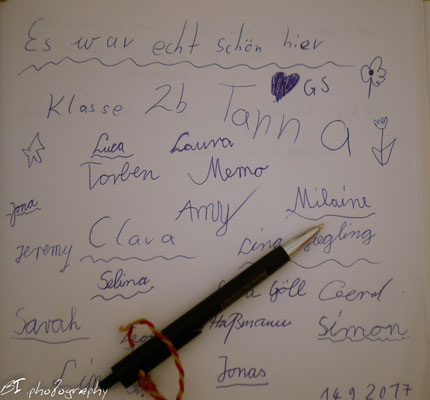 Es war echt schön hier
Klasse 2b Tanna GS
Luca Laura
Torben Memo
Jona Amy Milaine
Jeremy Clara Lina Jegling
Selina
Göll Coend
Sarah Haßmann Simon
Jonas
14.9.2017
BI photography